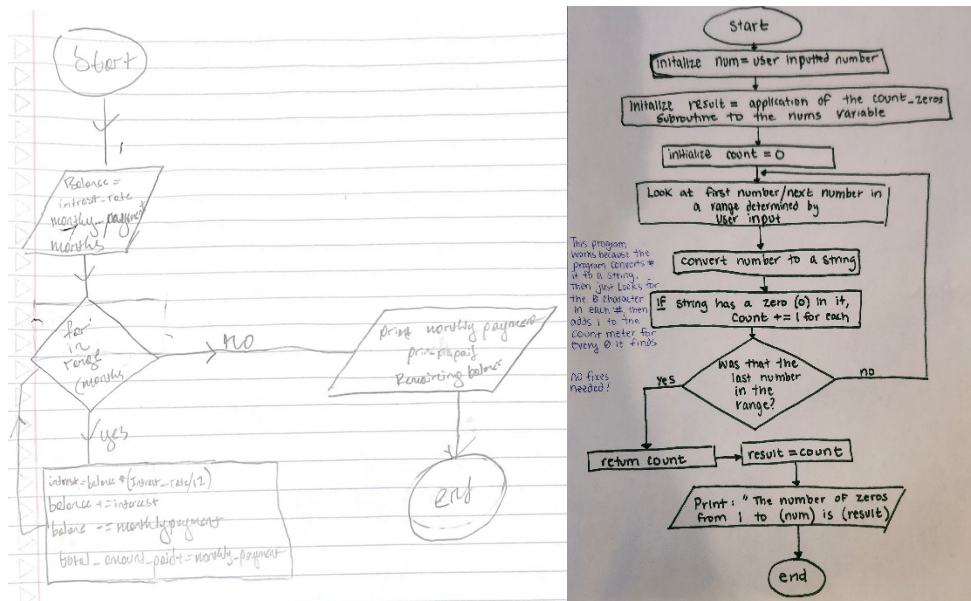 Start
Balance =
intrest_rate
monthly_payment
months
for
in
range
(months
NO
yes
interest=balance *(Intrest_rate/12)
balance += interest
balance -= monthlypayment
total_amount_paid+=monthly_payment
print monthly payment
Remaining balance
end
start
initalize num= user inputted number
Initalize result = application of the count_zeros
subroutine to the nums variable
initialize count = 0
Look at first number/next number in
a range determined by
user input
convert number to a string
If string has a zero (0) in it,
Count += 1 for each
Was that the
last number
in the
range?
yes
no
return count
result = count
Print: " The number of zeros
from 1 to (num) is (result)
end
This program
works because the
program converts #
it to a string,
Then just looks for
the 0 character
in each #, then
adds 1 to the
count meter for
every 0 it finds
no fixes
needed!